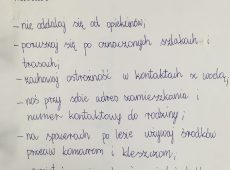 - nie oddalaj się od opiekunów,
- poruszaj się po oznaczonych szlakach i
trasach,
- zachowaj ostrożność w kontaktach z wodą,
- noś przy sobie adres zamieszkania i
numer kontaktowy do rodziny;
- na spacerach po lesie używaj środków
przeciw komarom i kleszczom,